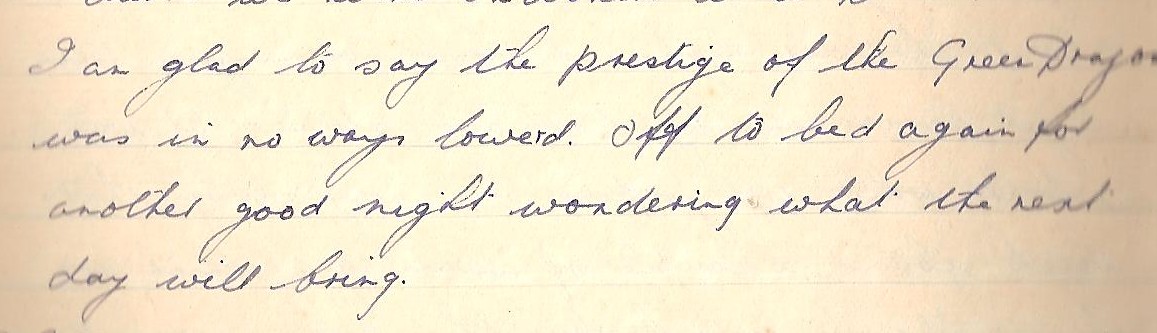 I am glad to say the prestige of the Green Dragon
was in no ways lowerd. Off to bed again for
another good night wondering what the next
day will bring.